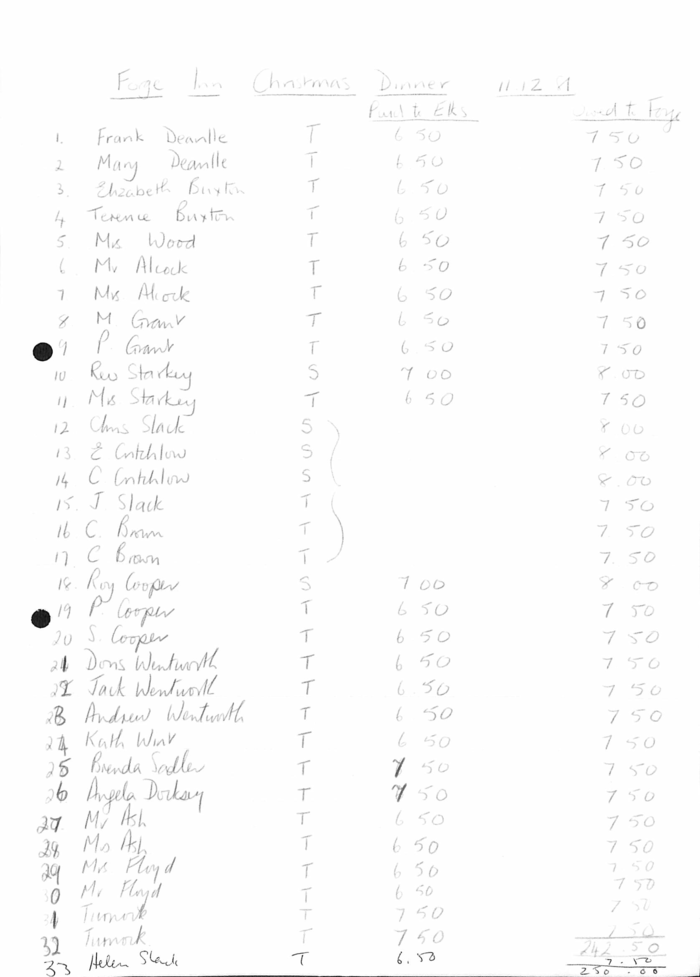 Forge Inn Christmas Dinner 11 12 81
Paid to Ellis Owed to Forge
1. Frank Deanlle T 6 50 7 50
2 Mary Deanlle T 6 50 7 50
3. Elizabeth Buxton T 6 50 7 50
4 Terence Buxton T 6 50 7 50
5 Mrs Wood T 6 50 7 50
6 Mr Alcock T 6 50 7 50
7 Mrs Alcock T 6 50 7 50
8 M Grant T 6 50 7 50
9 P. Grant T 6 50 7 50
10 Rev Starkey S 7 00 8 00
11 Mrs Starkey T 6 50 7 50
12 Chris Slack S 8 00
13 E Critchlow S 8 00
14 C Critchlow S 8.00
15. J Slack T 7 50
16 C. Brown T 7 50
17 C Brown T 7. 50
18. Roy Cooper S 7 00 8 00
19 P. Cooper T 6 50 7 50
20 S. Cooper T 6 50 7 50
21 Doris Wentworth T 6 50 7 50
22 Jack Wentworth T 6.50 7 50
23 Andrew Wentworth T 6 50 7 50
24 Kath Wint T 6 50 7 50
25 Brenda Sadler T 7 50 7 50
26 Angela Dorksey T 7 50 7 50
27 Mr Ash T 6 50 7 50
28 Ms Ash T 6 50 7 50
29 Mrs Floyd T 6 50 7 50
30 Mr Floyd T 6 50 7 50
31 Turnock T 7 50 7 50
32 Turnock T 7 50 7 50
242.50
33 Helen Slack T 6.50 7.50
250.00